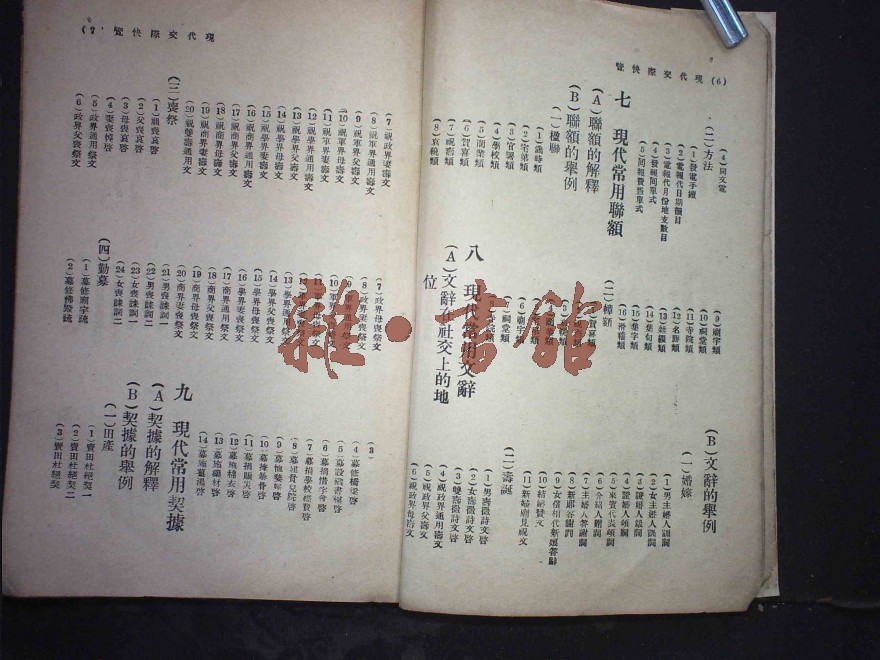 (6) 現代交際快覽
(4) 同文電
(二) 方法
(1) 發電手續
(2) 電報代日期韻目
(3) 電報代月份地支數目
(4) 發報同單式
七 現代常用聯額
(A) 聯額的解釋
(B) 聯額的舉例
(一) 楹聯
(1) 歲時類
(2) 宅第類
(3) 官署類
(4) 學校類
(5) 商業類
(6) 賀喜類
(7) 祝壽類
(8) 哀輓類
(9) 廟宇類
(10) 祠堂類
(11) 寺院類
(12) 名勝類
(14) 集句類
(15) 集字類
(16) 滑稽類
(二) 幛額
八 現代常用文辭
(A) 文辭在社交上的地
位
(B) 文辭的舉例
(一) 婚嫁
(1) 男主婚人訓詞
(2) 女主婚人訓詞
(3) 證婚人箴詞
(4) 證婚人頌詞
(5) 來賓代表頌詞
(6) 介紹人謝詞
(7) 主婚人答謝詞
(8) 新郎答謝詞
(10) 結婚贊文
(11) 新婦廟見祝文
(二) 壽誕
(1) 男壽徵詩文啓
(2) 女壽徵詩文啓
(3) 雙壽徵詩文啓
(4) 祝政界通用壽文
(5) 祝政界父壽文
(6) 祝政界母壽文
現代交際快覽 (7)
(7) 祝政界妻壽文
(8) 祝軍界通用壽文
(9) 祝軍界父壽文
(10) 祝軍界母壽文
(11) 祝軍界妻壽文
(12) 祝學界通用壽文
(13) 祝學界父壽文
(14) 祝學界母壽文
(15) 祝學界妻壽文
(16) 祝商界通用壽文
(17) 祝商界父壽文
(18) 祝商界母壽文
(19) 祝商界妻壽文
(20) 祝雙壽通用文
(三) 喪祭
(1) 親喪哀啓
(2) 父喪哀啓
(3) 母喪哀啓
(4) 妻喪悼啓
(5) 政界通用祭文
(6) 政界父喪祭文
(7) 政界母喪祭文
(8) 政界妻喪祭文
(14) 學界父喪祭文
(15) 學界母喪祭文
(16) 學界妻喪祭文
(17) 商界通用祭文
(18) 商界父喪祭文
(19) 商界母喪祭文
(20) 商界妻喪祭文
(21) 男喪誄詞一
(22) 男喪誄詞二
(23) 女喪誄詞一
(24) 女喪誄詞二
(四) 勸募
(1) 募修廟宇疏
(2) 募修佛殿疏
(3)
(4) 募修橋梁啓
(5) 募設義書啓
(6) 募捐惜字會啓
(7) 募捐學校經費啓
(8) 募建貧兒院啓
(11) 募捐賑災啓
(12) 募施棉衣啓
(13) 募施藥材啓
(14) 募施薑湯啓
九 現代常用契據
(A) 契據的解釋
(B) 契據的舉例
(一) 田產
(1) 賣田杜絕契一
(2) 賣田杜絕契二
(3) 賣田杜絕契
雜·書館